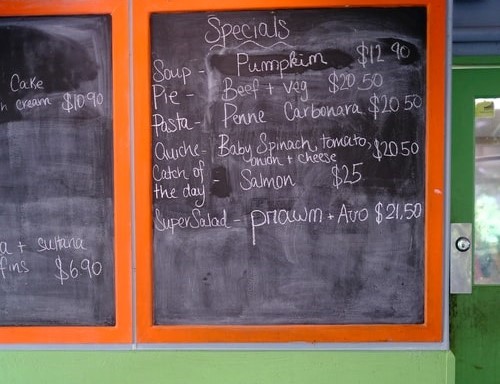 Cake
cream $10.90
a + sultana
fins $6.90
Specials
Soup - Pumpkim $12.90
Pie - Beef + veg $20.50
Pasta - Penne Carbonara $20.50
Quiche - Baby Spinach, tomato, $20.50
onion + cheese
Catch of
the day - Salmon $25
SuperSalad - prawn + Avo $21.50